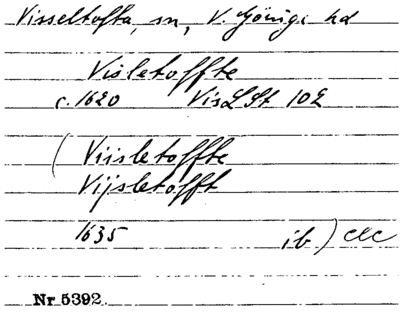 Visseltofta, sn, V. Göinge hd
Visletoffte
c. 1620 VisLSt 102
(Viisletoffte
Vijsletofft
1635 ib)
Nr 5392.